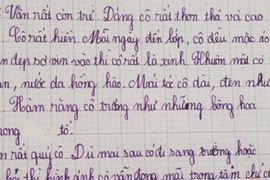 Vân rất còn trẻ. Dáng cô rất thon thả và cao
Cô rất hiền. Mỗi ngày đến lớp, cô đều mặc áo
đẹp sơ vin vào thì cô rất là xinh. Khuôn mặt cô
, nước da hồng hào. Mái tó cô dài, đen như
Hàm răng cô trắng như những bông hoa
tô.
rất quý cô. Dù mai sau có đi sang trường hoặc
thì hình ảnh cô vẫn đọng mãi trong tâm chí c